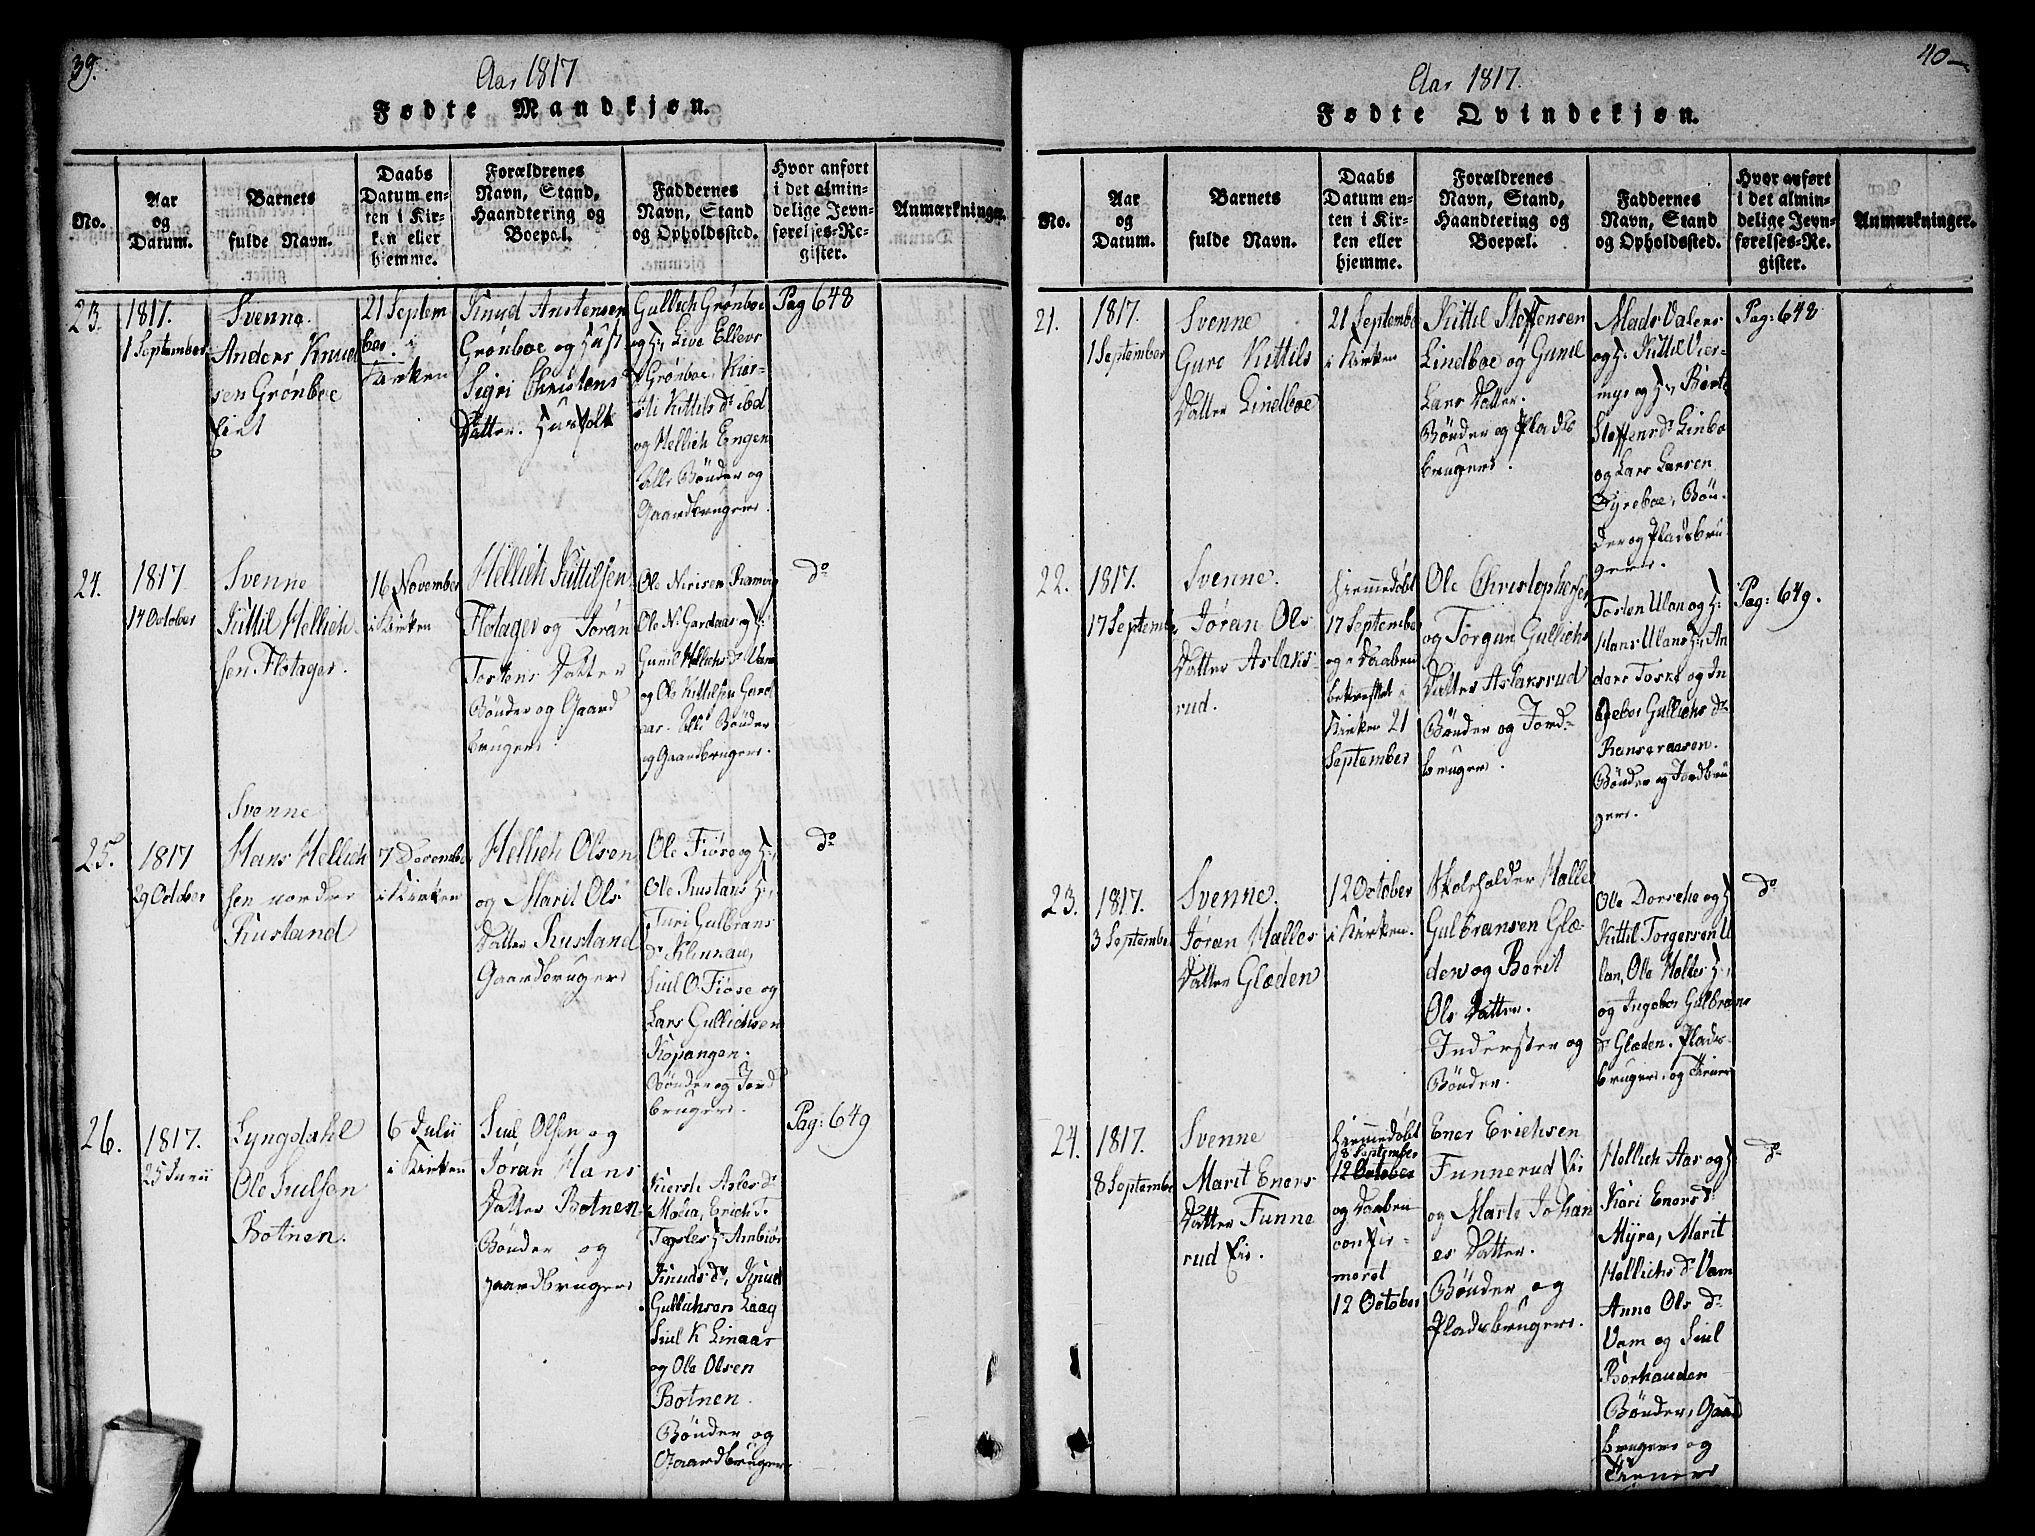 39.
Aar 1817
Fødte Mandkjøn.
No.
Aar
og
Datum.
Barnets
fulde Navn.
Daabs
Datum en-
ten i Kir-
ken eller
hjemme.
Forældrenes
Navn, Stand,
Haandtering og
Boepæl.
Faddernes
Navn, Stand
og Opholdssted.
Hvor anført
i det almin-
delige Jevn-
førelses-Re-
gister.
Anmærkninger.
23.
1817.
1 September
Svenne.
Anders Knud
sen Grønboe
Eiet
21 Septem
ber. i
Kirken
Knud Anstensen
Grønboe og Hust
Sigri Christens
Datter. Husfolk
Gullich Grønboe
og H: Live Ellevs
d Grønboe, Kier-
sti Kittils dr ibd
og Hellich Engen
alle Bønder og
Gaardbrugere.
Pag 648
24.
1817
14 October
Svenne
Kittil Hellich-
sen Flotager.
16 November
i Kirken
Hellich Kittilsen
Flotager og Jøran
Tostens Datter
Bønder og Gaard
brugere
Ole Nirisen Ramvig
Ole N: Gardaas og H:
Gunil Hellichs dr Vam
og Ole Kittilsen Gard
aas. Alle Bønder
og Gaardbrugere.
do
25.
1817
29 October
Svenne
Hans Hellich
sen nordre
Rustand
7 December
i Kirken
Hellich Olsen
og Marit Ols
Datter Rustand
Gaardbrugere
Ole Fiøse og H:,
Ole Rustans H:,
Turi Gulbrans
dr Klunnau,
Siul O. Fiøse og
Lars Gullichsen
Kopangen.
Bønder og Jord
brugere.
do
26.
1817.
25 Junii
Lyngdahl
Ole Siulsen
Botnen.
6 Julii
i Kirken
Siul Olsen og
Jøran Hans
Datter Botnen
Bønder og
Gaardbrugere
Kiersti Asles dr
Molia, Erich T.
Tegsles H: Ambiør
Knuds dr, Knud
Gullichsen Laag
Siul K Linaas
og Ole Olsen
Botnen.
Bønder og
Gaardbrugere
Pag: 649
40
Aar 1817.
Fødte Qvindekjøn.
No.
Aar
og
Datum.
Barnets
fulde Navn.
Daabs
Datum en-
ten i Kir-
ken eller
hjemme.
Forældrenes
Navn, Stand,
Haandtering og
Boepæl.
Faddernes
Navn, Stand
og Opholdssted.
Hvor anført
i det almin-
delige Jevn-
førelses-Re-
gister.
Anmærkninger.
21.
1817.
1 September
Svenne
Guro Kittils
Datter Lindboe
21 September
i Kirken
Kittil Steffensen
Lindboe og Gunil
Lars Datter.
Bønder og Plads
brugere.
Mads Valers
og H: Kittil Vier-
mys og H:, Berte
Steffens dr Linbo
og Lars Larsen
Tyreboe, Bøn-
der og Pladsbru
gere.
Pag: 648
22.
1817.
17 Septembr
Svenne.
Jøran Ols
Datter Aslaks-
rud.
Hiemmedøbt
17 September
og Daaben
bekræftet i
Kirken 21
September
Ole Christophersen
og Torgun Gullichs
Datter Aslaksrud
Bønder og Jord-
bruger.
Tosten Ulan og H:
Hans Ulans H: An
ders Toske og In
gebor Gullichs dr
Ranseraasen.
Bønder og Jordbru
gere.
Pag: 649.
23.
1817.
3 September
Svenne.
Jøran Halles
Datter Glæden
12 October
i Kirken.
Skoleholder Halle
Gulbransen Glæ-
den og Berit
Ols Datter.
Inderster og
Bønder.
Ole Dorsehe og H
Kittil Torgersen U
lan, Ole Moltes H:,
og Ingebor Gulbrans
dr Glæden. Plads-
brugere og Tiener
do
24.
1817.
8 Septembr
Svenne
Marit Eners
Datter Funne
rud Eie.
Hiemmedøbt
8 September
12 October
og Daaben
confir-
meret
12 October
Ener Erichsen
Funnerud Eie
og Marte Johan
es Datter.
Bønder og
Pladsbrugere.
Hellich Aas og H:
Kari Eners dr
Myra, Marit
Hellichs dr Vam
Anne Ols dr
Vam og Siul
Borhauden
Bønder, Gaard
brugere og
Tienere
do